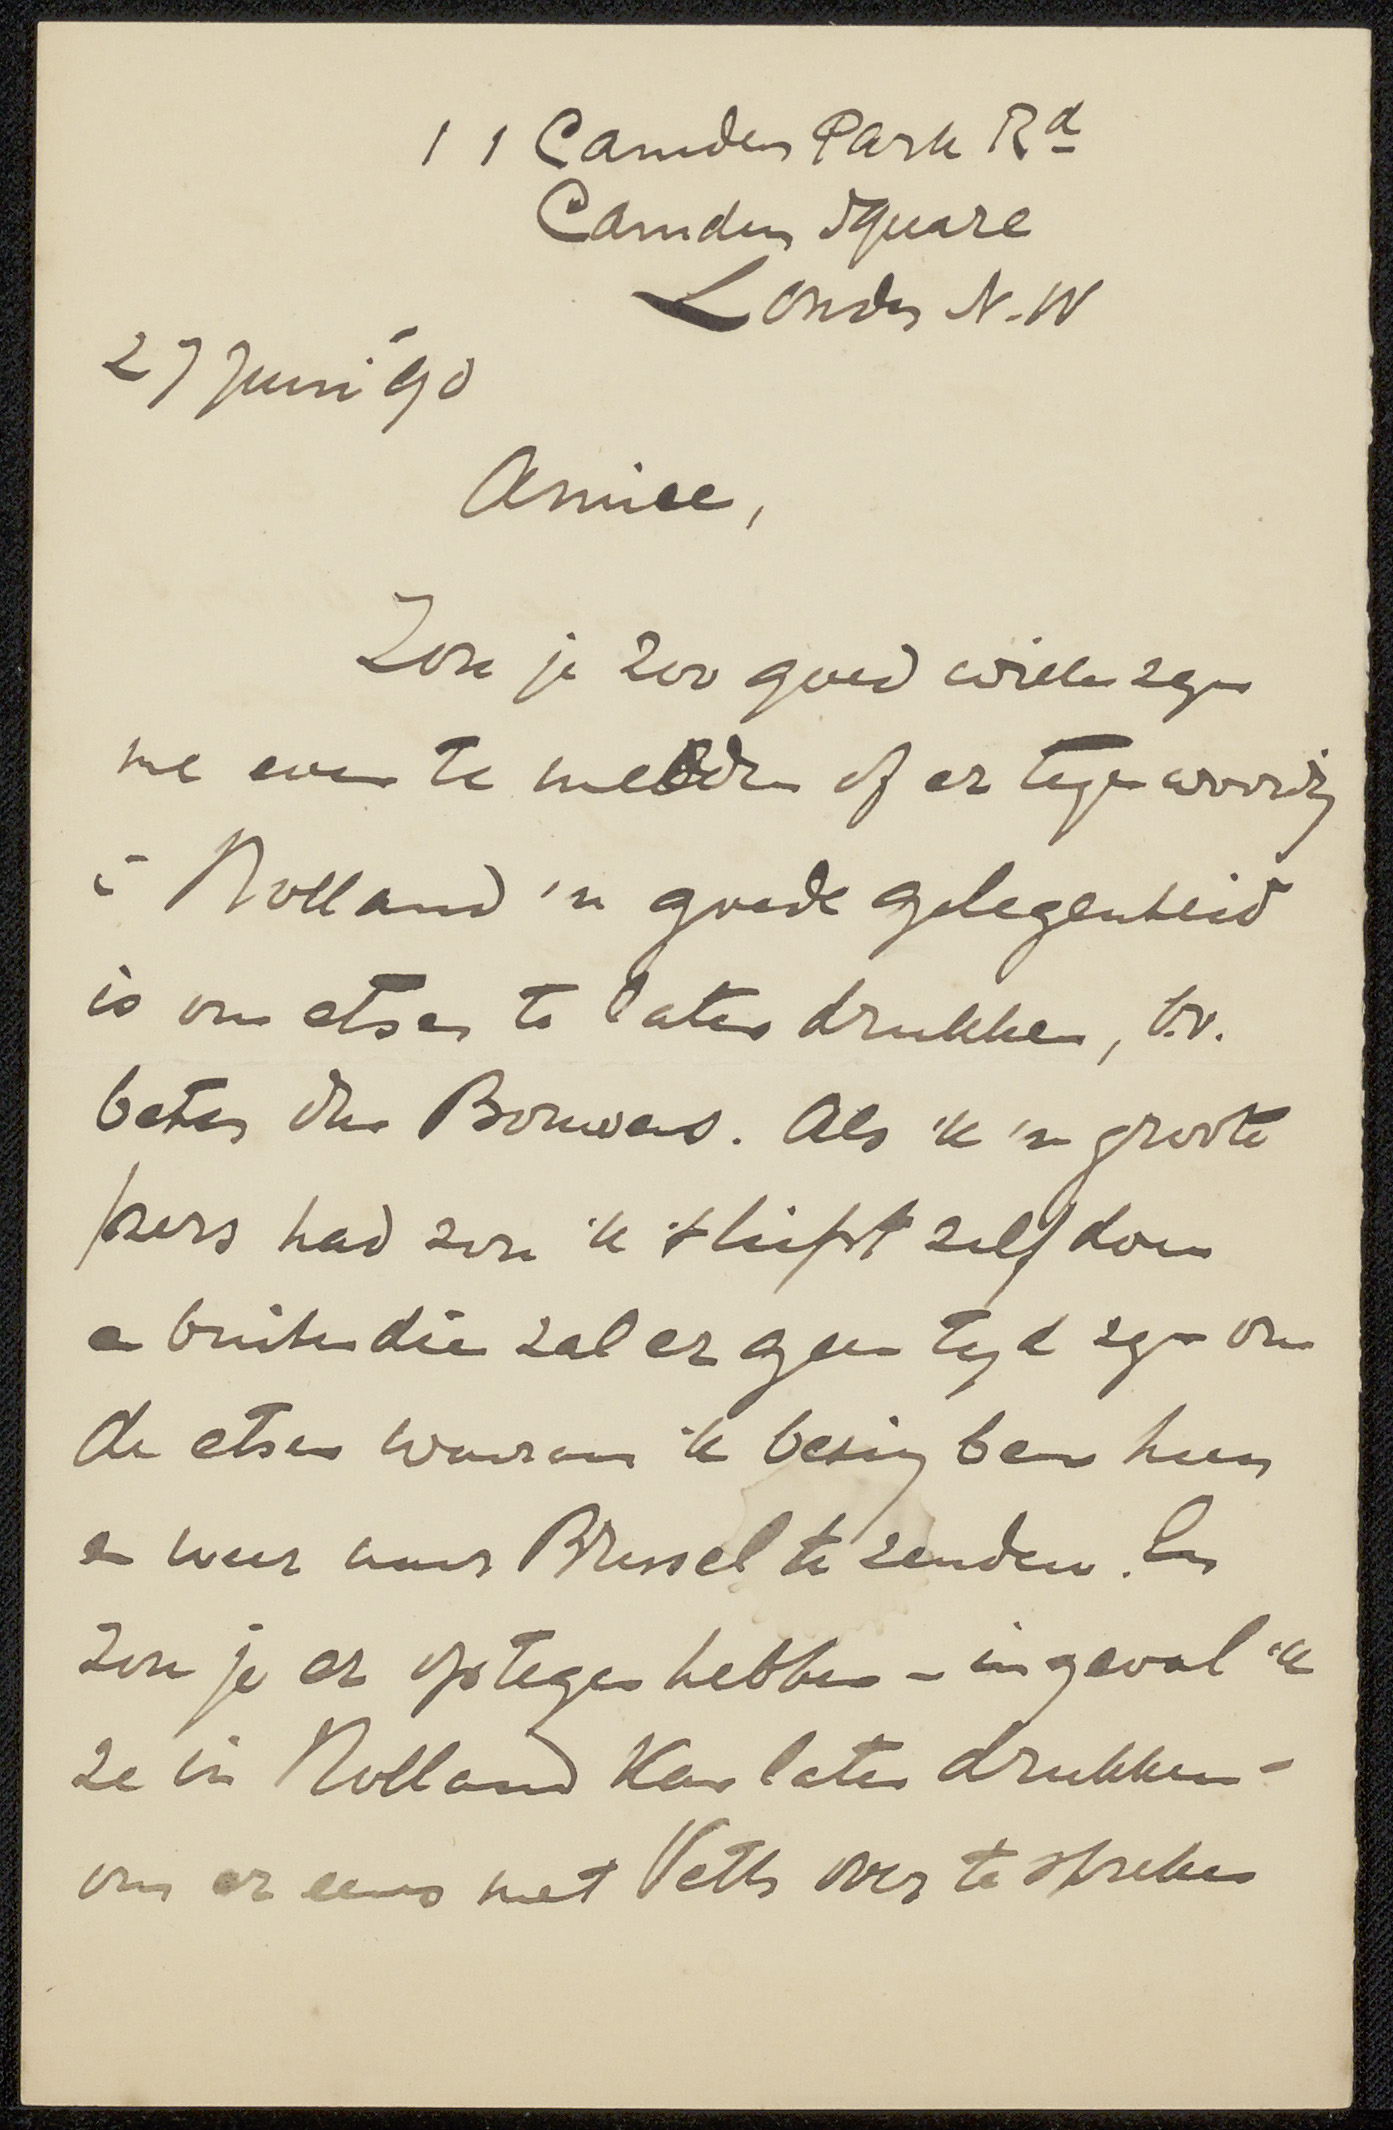 11 Camden Park Rd
Camden Square
London N.W
27 Juni 90
Amice,
Zou je zoo goed willen zijn
me even te melden of er tegenwoordig
in Holland 'n goede gelegenheid
is om etsen te laten drukken, b.v.
beter dan Bouwens. Als 'k 'n groote
pers had zou 'k 't liefst zelf doen
en buitendien zal er geen tijd zijn om
de etsen waaraan 'k bezig ben heen
en weer naar Brussel te zenden. En
zou je er op tegen hebben - ingeval 'k
ze in Holland kan laten drukken -
om er eens met Veth over te spreken